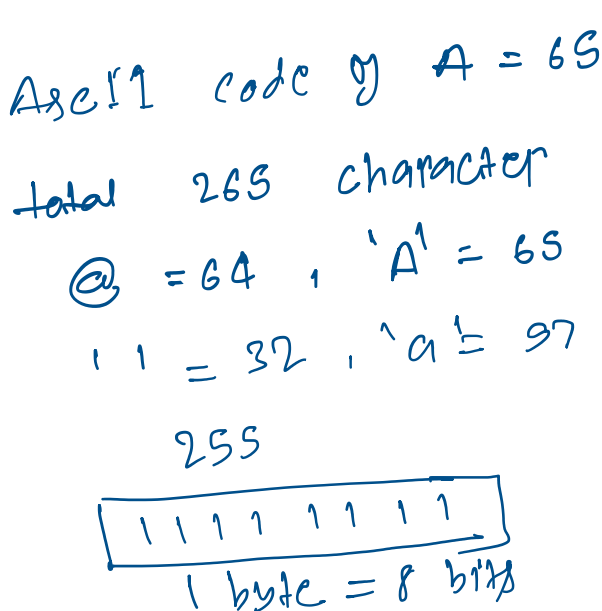 Ascii code of A = 65
total 265 character
@ = 64 , 'A' = 65
' ' = 32 , 'a' = 97
255
1 1 1 1 1 1 1 1
1 byte = 8 bits